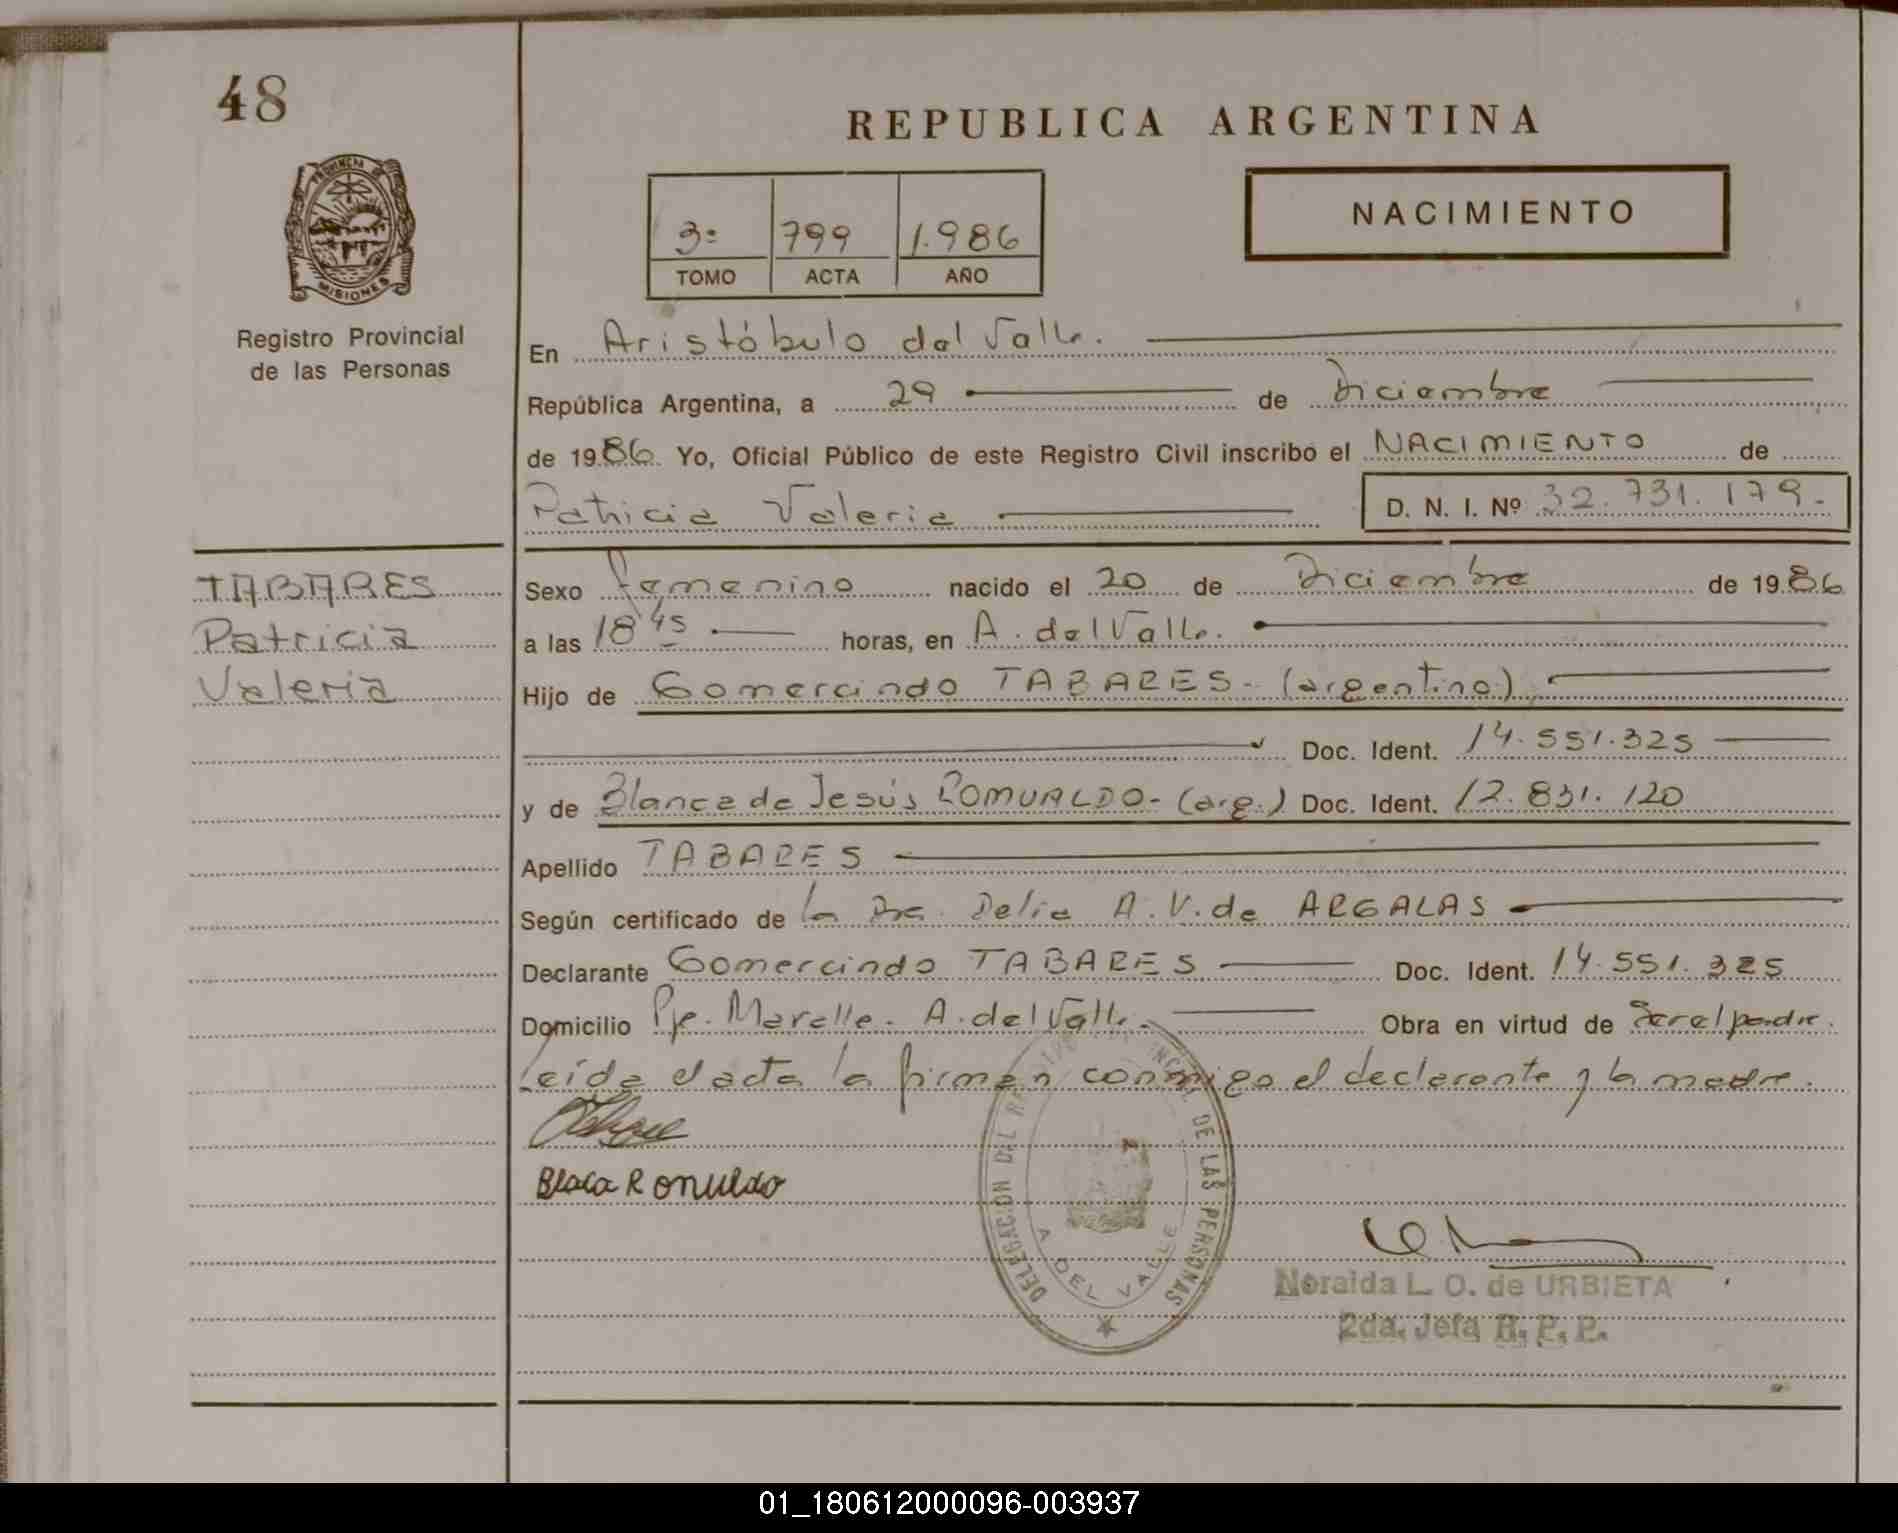 48
REPUBLICA ARGENTINA
PROVINCIA DE
MISIONES
Registro Provincial
de las Personas
3º 799 1.986
TOMO ACTA AÑO
NACIMIENTO
En Aristóbulo del Valle.
República Argentina, a 29 de Diciembre
de 1986. Yo, Oficial Público de este Registro Civil inscribo el NACIMIENTO de
Patricia Valeria D. N. I. Nº 32.731.179.-
TABARES
Patricia
Valeria
Sexo femenino nacido el 20 de Diciembre de 1986
a las 18'45 horas, en A. del Valle.
Hijo de Gomercindo TABARES- (argentino)
Doc. Ident. 14.551.325
y de Blanca de Jesús ROMUALDO- (arg.) Doc. Ident. 12.831.120
Apellido TABARES
Según certificado de la Dra. Delia A. V. de ARGALAS
Declarante Gomercindo TABARES Doc. Ident. 14.551.325
Domicilio Pje. Marelle. A. del Valle. Obra en virtud de Ser el padre.
Leída el acta la firman conmigo el declarante y la madre.
Blaca Ronuldo
DELEGACION DEL REGISTRO PROVINCIAL DE LAS PERSONAS
A. DEL VALLE
Noralda L. O. de URBIETA
2da. Jefa R. P. P.
01_180612000096-003937